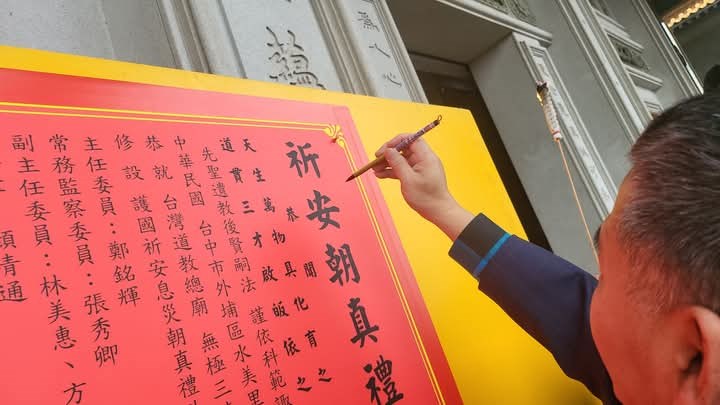 萬
為人心
祈安朝真禮
恭聞
天生萬物具化育之
道貫三才啟皈依之
先聖遺教後賢嗣法 謹依科範諏
中華民國 台中市外埔區水美里
恭就 台灣道教總廟 無極三
修設 護國祈安息災朝真禮
主任委員：鄭銘輝
常務監察委員：張秀卿
副主任委員：林美惠、方
清通